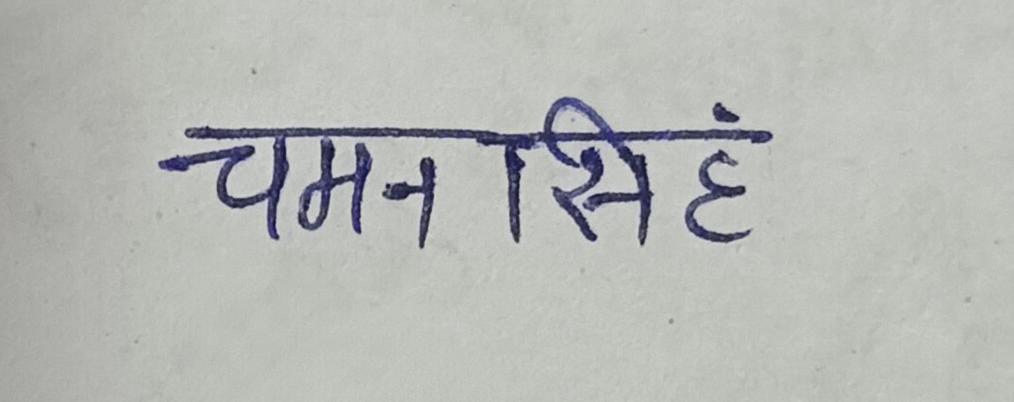 चमन सिहं